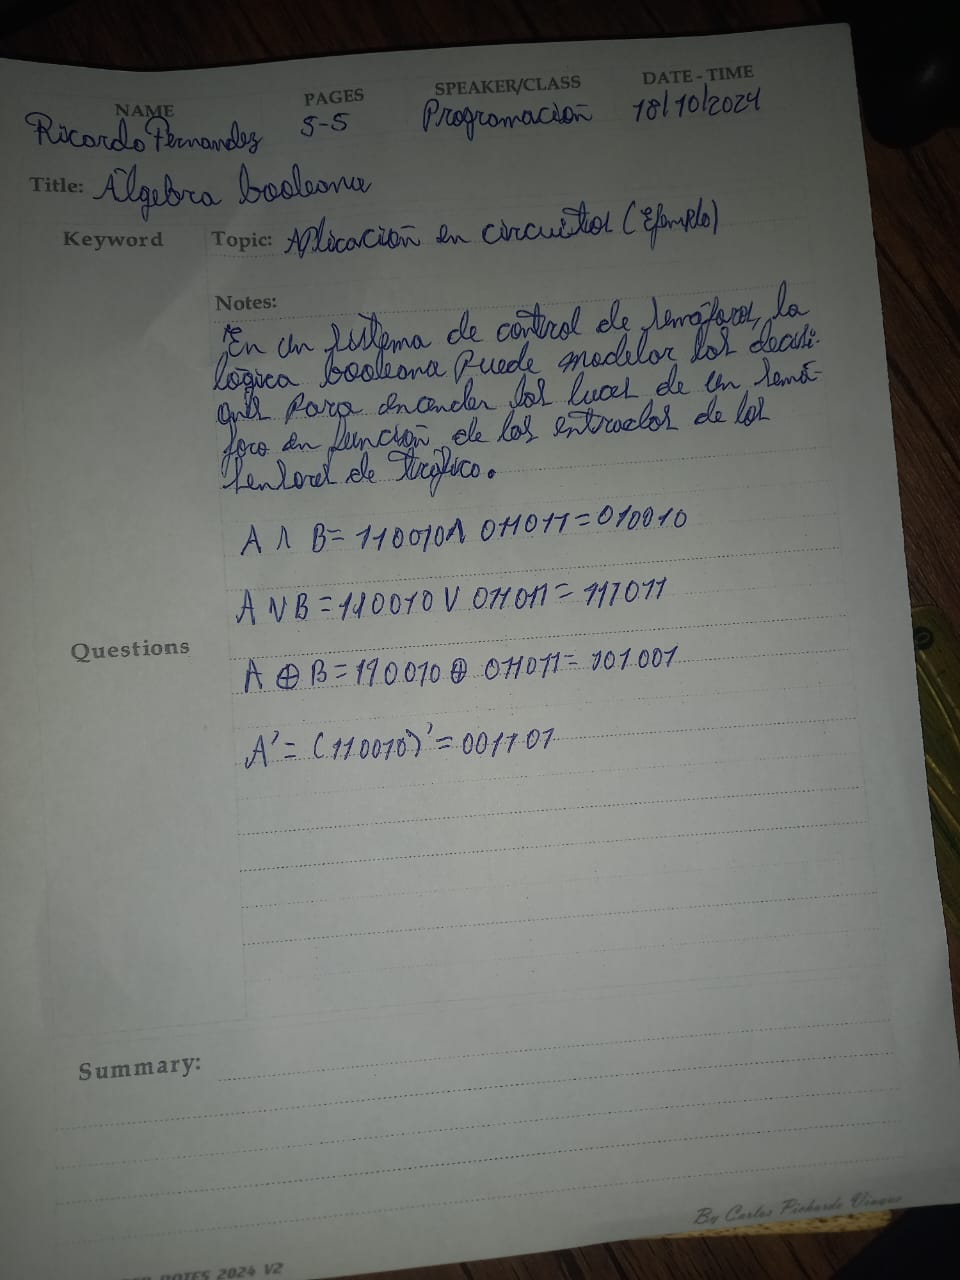 NAME PAGES SPEAKER/CLASS DATE-TIME
Ricardo Fernandez 5-5 Programación 18/10/2024
Title: Álgebra booleana
Keyword Topic: Aplicación en circuitos (Ejemplo)
Notes:
*En un sistema de control de semáforos, la
lógica booleana puede modelar las decisi-
ones para encender las luces de un semá-
foro en función de las entradas de los
sensores de tráfico.
A ∧ B = 110010 ∧ 011011 = 010010
A ∨ B = 110010 ∨ 011011 = 111011
Questions
A ⊕ B = 110010 ⊕ 011011 = 101001
A' = (110010)' = 001101
Summary:
By Carlos Pichardo Viuque
NOTES 2024 V2